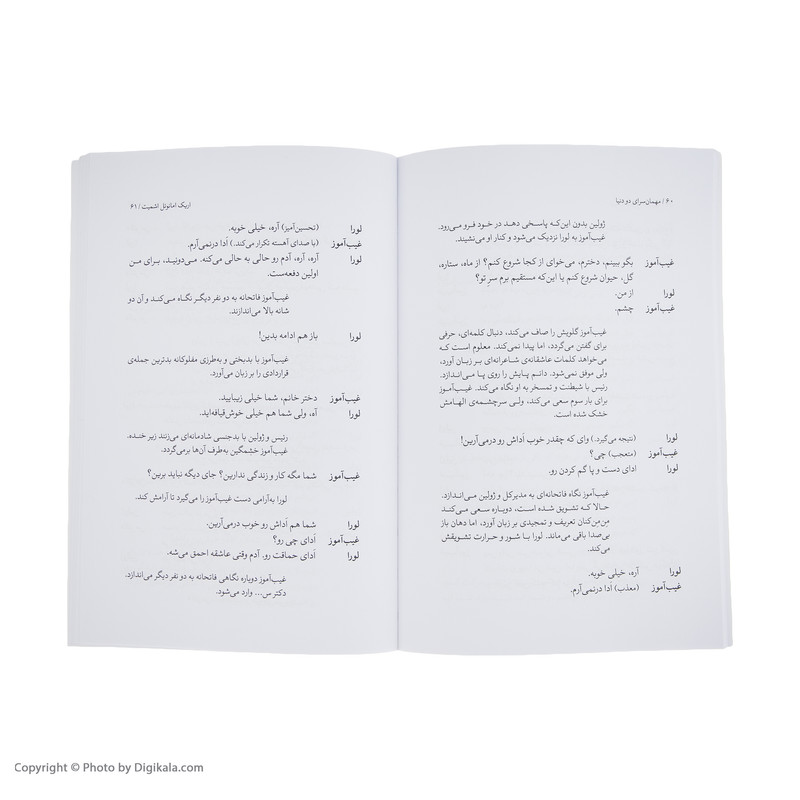 ۶۰ / مهمان‌سرای دو دنیا
ژولین بدون این‌که پاسخی دهد در خود فرو می‌رود.
غیب‌آموز به لورا نزدیک می‌شود و کنار او می‌نشیند.
غیب‌آموز بگو ببینم، دخترم، می‌خوای از کجا شروع کنم؟ از ماه، ستاره،
گل، حیوان شروع کنم یا این‌که مستقیم برم سرِ تو؟
لورا از من.
غیب‌آموز چشم.
غیب‌آموز گلویش را صاف می‌کند، دنبال کلمه‌ای، حرفی
برای گفتن می‌گردد، اما پیدا نمی‌کند. معلوم است که
می‌خواهد کلمات عاشقانه‌ی شاعرانه‌ای بر زبان آورد،
ولی موفق نمی‌شود. دائم پایش را روی پا می‌اندازد.
رئیس با شیطنت و تمسخر به او نگاه می‌کند. غیب‌آموز
برای بار سوم سعی می‌کند، ولی سرچشمه‌ی الهامش
خشک شده است.
لورا (نتیجه می‌گیرد.) وای که چقدر خوب اَداش رو درمی‌آرین!
غیب‌آموز (متعجب) چی؟
لورا ادای دست و پا گم کردن رو.
غیب‌آموز نگاه فاتحانه‌ای به مدیرکل و ژولین می‌اندازد.
حالا که تشویق شده است، دوباره سعی می‌کند
مِن‌مِن‌کنان تعریف و تمجیدی بر زبان آورد، اما دهان باز
بی‌صدا باقی می‌ماند. لورا با شور و حرارت تشویقش
می‌کند.
لورا آره، خیلی خوبه.
غیب‌آموز (معذب) اَدا درنمی‌آرم.
اریک امانوئل اشمیت / ۶۱
لورا (تحسین‌آمیز) آره، خیلی خوبه.
غیب‌آموز (با صدای آهسته تکرار می‌کند.) اَدا درنمی‌آرم.
لورا آره، آره، آدم رو حالی به حالی می‌کنه. می‌دونید، برای من
اولین دفعه‌ست.
غیب‌آموز فاتحانه به دو نفر دیگر نگاه می‌کند و آن دو
شانه بالا می‌اندازند.
لورا باز هم ادامه بدین!
غیب‌آموز با بدبختی و به‌طرزی مفلوکانه بدترین جمله‌ی
قراردادی را بر زبان می‌آورد.
غیب‌آموز دختر خانم، شما خیلی زیبایید.
لورا آه، ولی شما هم خیلی خوش‌قیافه‌اید.
رئیس و ژولین با بدجنسی شادمانه‌ای می‌زنند زیر خنده.
غیب‌آموز خشمگین به‌طرف آن‌ها برمی‌گردد.
غیب‌آموز شما مگه کار و زندگی ندارین؟ جای دیگه نباید برین؟
لورا به‌آرامی دست غیب‌آموز را می‌گیرد تا آرامش کند.
لورا شما هم اَداش رو خوب درمی‌آرین.
غیب‌آموز اَدای چی رو؟
لورا اَدای حماقت رو. آدم وقتی عاشقه احمق می‌شه.
غیب‌آموز دوباره نگاهی فاتحانه به دو نفر دیگر می‌اندازد.
دکتر س... وارد می‌شود.
Copyright © Photo by Digikala.com